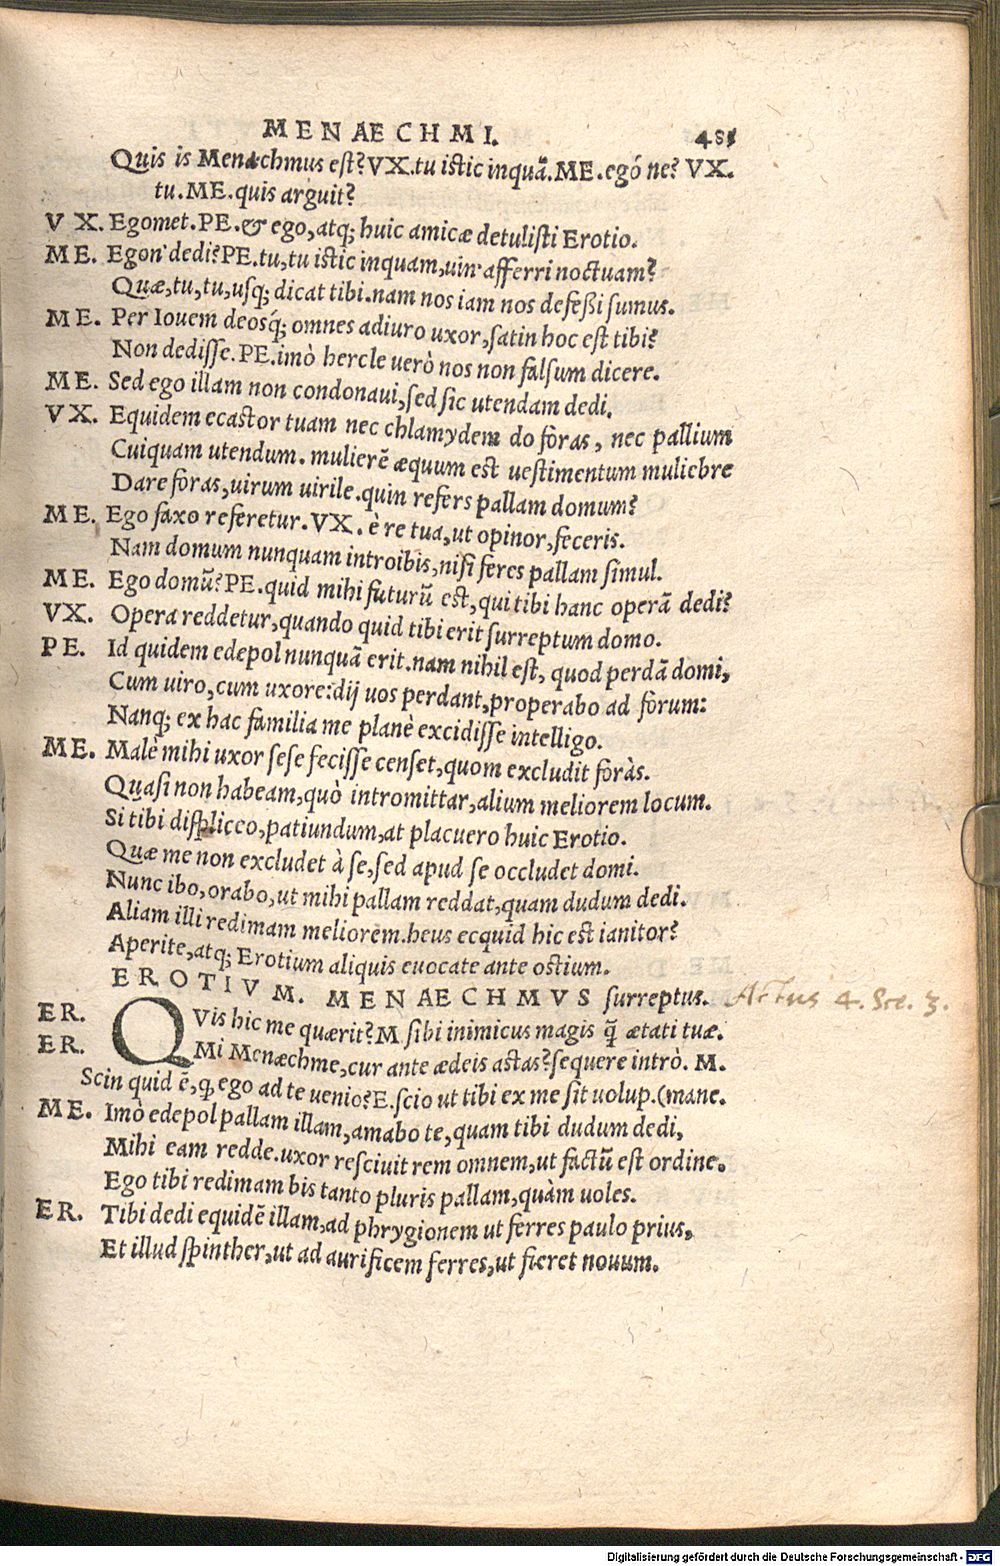 MENAECHMI. 481
Quis is Menæchmus est? VX. tu istic inquã. ME. egó ne? VX.
tu. ME. quis arguit?
VX. Egomet. PE. & ego, atq; huic amicæ detulisti Erotio.
ME. Egon' dedi? PE. tu, tu istic inquam, uin' afferri noctuam?
Quæ, tu, tu, usq; dicat tibi. nam nos iam nos defeßi sumus.
ME. Per Iovem deosq́; omnes adiuro uxor, satin hoc est tibi?
Non dedisse. PE. imò hercle uerò nos non falsum dicere.
ME. Sed ego illam non condonaui, sed sic utendam dedi.
VX. Equidem ecastor tuam nec chlamydem do foras, nec pallium
Cuiquam utendum. mulierẽ æquum est uestimentum muliebre
Dare foras, uirum uirile. quin refers pallam domum?
ME. Ego faxo referetur. VX. è re tua, ut opinor, feceris.
Nam domum nunquam introibis, nisi feres pallam simul.
ME. Ego domũ? PE. quid mihi futurũ est, qui tibi hanc operã dedi?
VX. Opera reddetur, quando quid tibi erit surreptum domo.
PE. Id quidem edepol nunquã erit. nam nihil est, quod perdã domi,
Cum uiro, cum uxore: dij uos perdant, properabo ad forum:
Nanq; ex hac familia me planè excidisse intelligo.
ME. Malè mihi uxor sese fecisse censet, quom excludit foràs.
Quasi non habeam, quò intromittar, alium meliorem locum.
Si tibi displiceo, patiundum, at placuero huic Erotio.
Quæ me non excludet à se, sed apud se occludet domi.
Nunc ibo, orabo, ut mihi pallam reddat, quam dudum dedi.
Aliam illi redimam meliorem. heus ecquid hic est ianitor?
Aperite, atq; Erotium aliquis euocate ante ostium.
EROTIVM. MENAECHMVS surreptus. Actus 4. Sce. 3.
ER. QVis hic me quærit? M sibi inimicus magis q̃ ætati tuæ.
ER. Mi Menæchme, cur ante ædeis astas? sequere intrò. M.
Scin quid ẽ, q; ego ad te uenio? E. scio ut tibi ex me sit uolup. (mane.
ME. Imò edepol pallam illam, amabo te, quam tibi dudum dedi,
Mihi eam redde. uxor resciuit rem omnem, ut factũ est ordine.
Ego tibi redimam bis tanto pluris pallam, quàm uoles.
ER. Tibi dedi equidẽ illam, ad phrygionem ut ferres paulo prius,
Et illud spinther, ut ad aurificem ferres, ut fieret nouum.
Digitalisierung gefördert durch die Deutsche Forschungsgemeinschaft - DFG